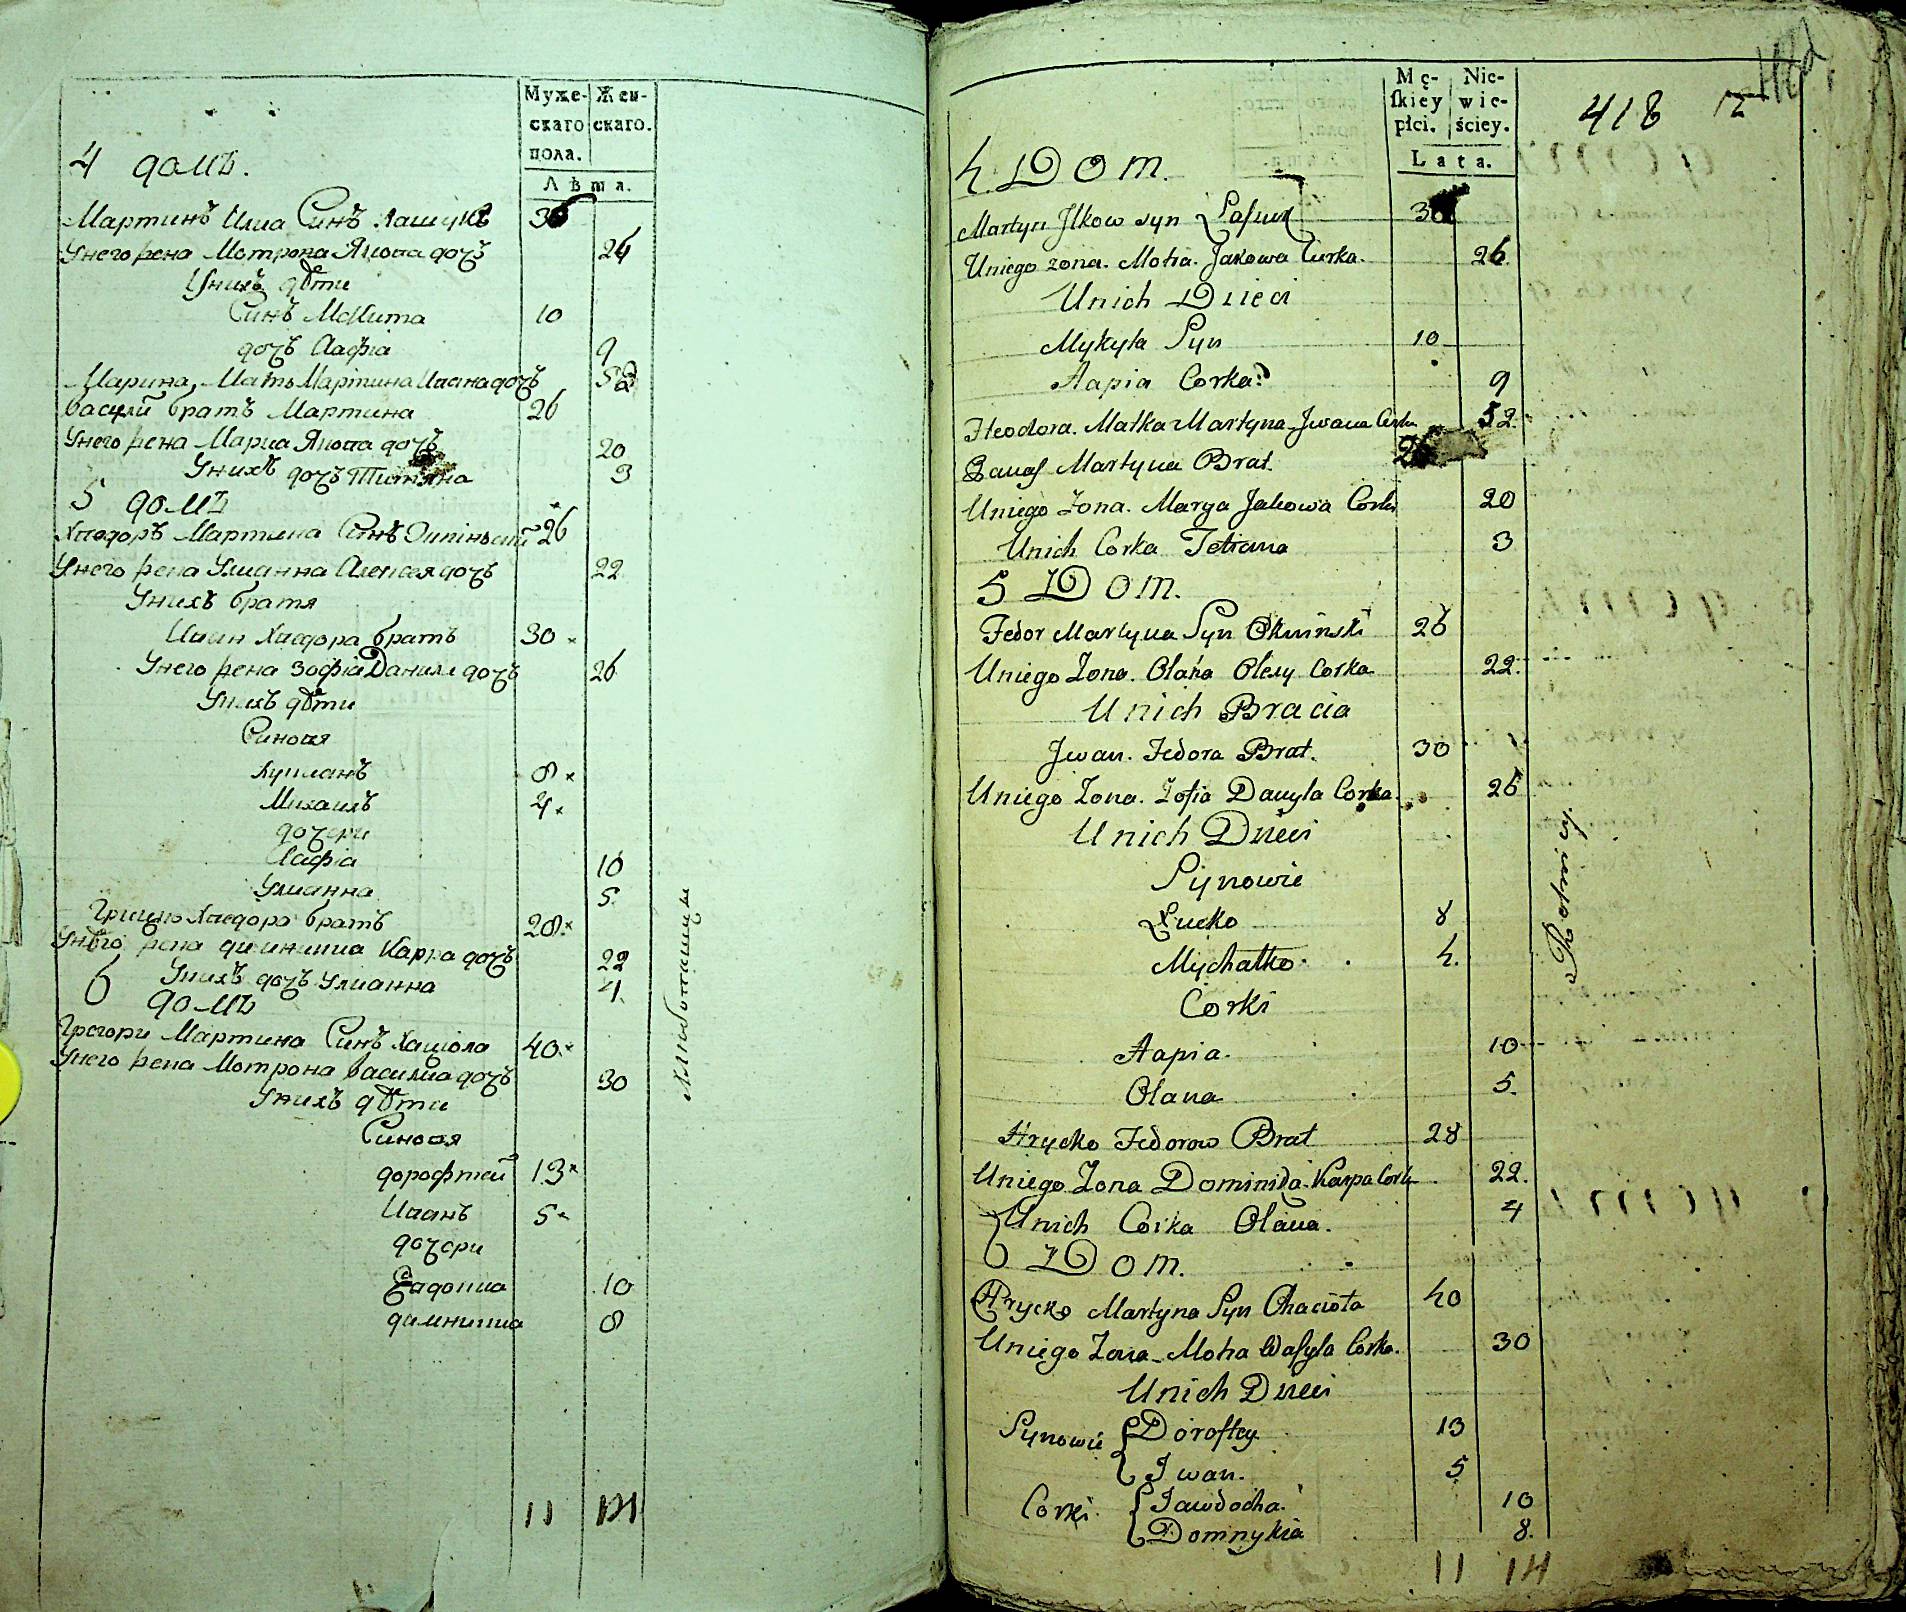 Муже-
скаго
пола.
Жен-
скаго.
Лѣта.
4 домъ.
Мартинъ Илиа Синъ Лашукъ 36
Унего жена Мотрона Якова дочъ 26
Унихъ дѣти
Синъ Микита 10
дочъ Аафіа 9
Марина, Мать Мартина Ивана дочъ 52
Василй братъ Мартина 26
Унего жена Мариа Якова дочъ 20
Унихъ дочъ Титяна 3
5 домъ
Хведоръ Мартина Синъ 26
Унего жена Улианна Алексея дочъ 22
Унихъ братя
Иван Хведора братъ 30
Унего жена Зофіа Данила дочъ 26
Унихъ дѣти
Синовя
Луцианъ 8
Михаилъ 4
дочери
Аафіа 10
Улианна 5
Грицко Хведора братъ 28
Унего жена димникиа Карпа дочъ 22
Унихъ дочъ Улианна 4
6 домъ
Грегори Мартина Синъ Хациола 40
Унего жена Мотрона Василиа дочъ 30
Унихъ дѣти
Синовя
дорофтей 13
Иванъ 5
дочери
Евдокиа 10
димникиа 8
11 14
Mę-
skiey
płci.
Nie-
wie-
ściey.
Lata.
418
12
4 Dom.
Martyn Ilkow syn Łaszuk 36
Uniego zona. Motra. Jakowa Curka. 26
Unich Dzieci
Mykyta Syn 10
Aapia Corka 9
Fteodora. Matka Martyna Jwana Corka 52.
Martyna Brat. 26
Uniego Zona. Marya Jakowa Corka 20
Unich Corka Tetiana 3
5 Dom.
Fedor Martyna Syn Okninski 26
Uniego Zona. Olana Olexy Corka 22.
Unich Bracia
Jwan. Fedora Brat. 30
Uniego Zona. Zofia Danyla Corka. 26
Unich Dzieci
Synowie
Łucko 8
Mychałko 4.
Corki
Aapia. 10
Olana 5.
Hrycko Fedorow Brat 28
Uniego Zona Dominika Karpa Corka 22.
Unich Corka Olana. 4
6 Dom.
Hrycko Martyna Syn Chacioła 40
Uniego Zona Motra Wasyla Corka. 30
Unich Dzieci
Synowie Doroftey 13
Jwan. 5
Corki Jawdocha. 10
Domnykia 8.
11 14
Rolnicy